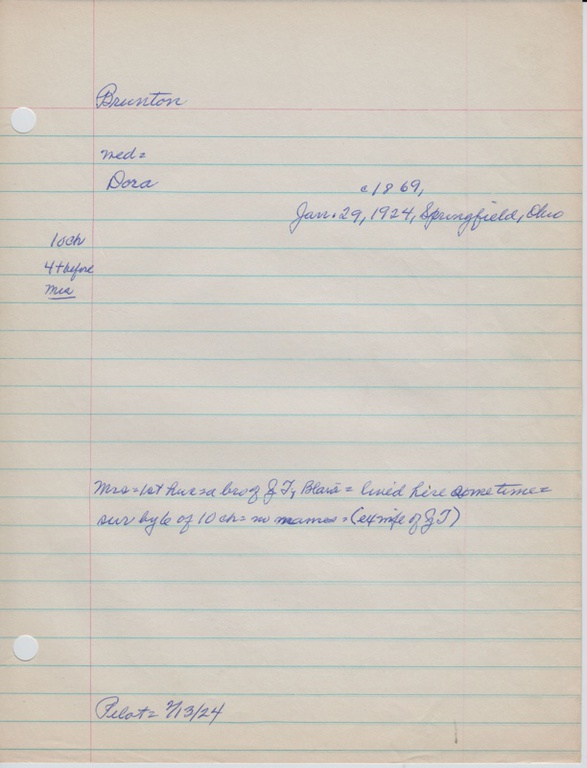 Brunton
med=
Dora c1869,
Jan. 29, 1924, Springfield, Ohio
10ch
4 + before
Mrs
Mrs = 1st hus = a bro of J T, Blair = lived here sometime =
sur by 6 of 10 ch = no names = (ex wife of J T)
Pilot = 2/13/24